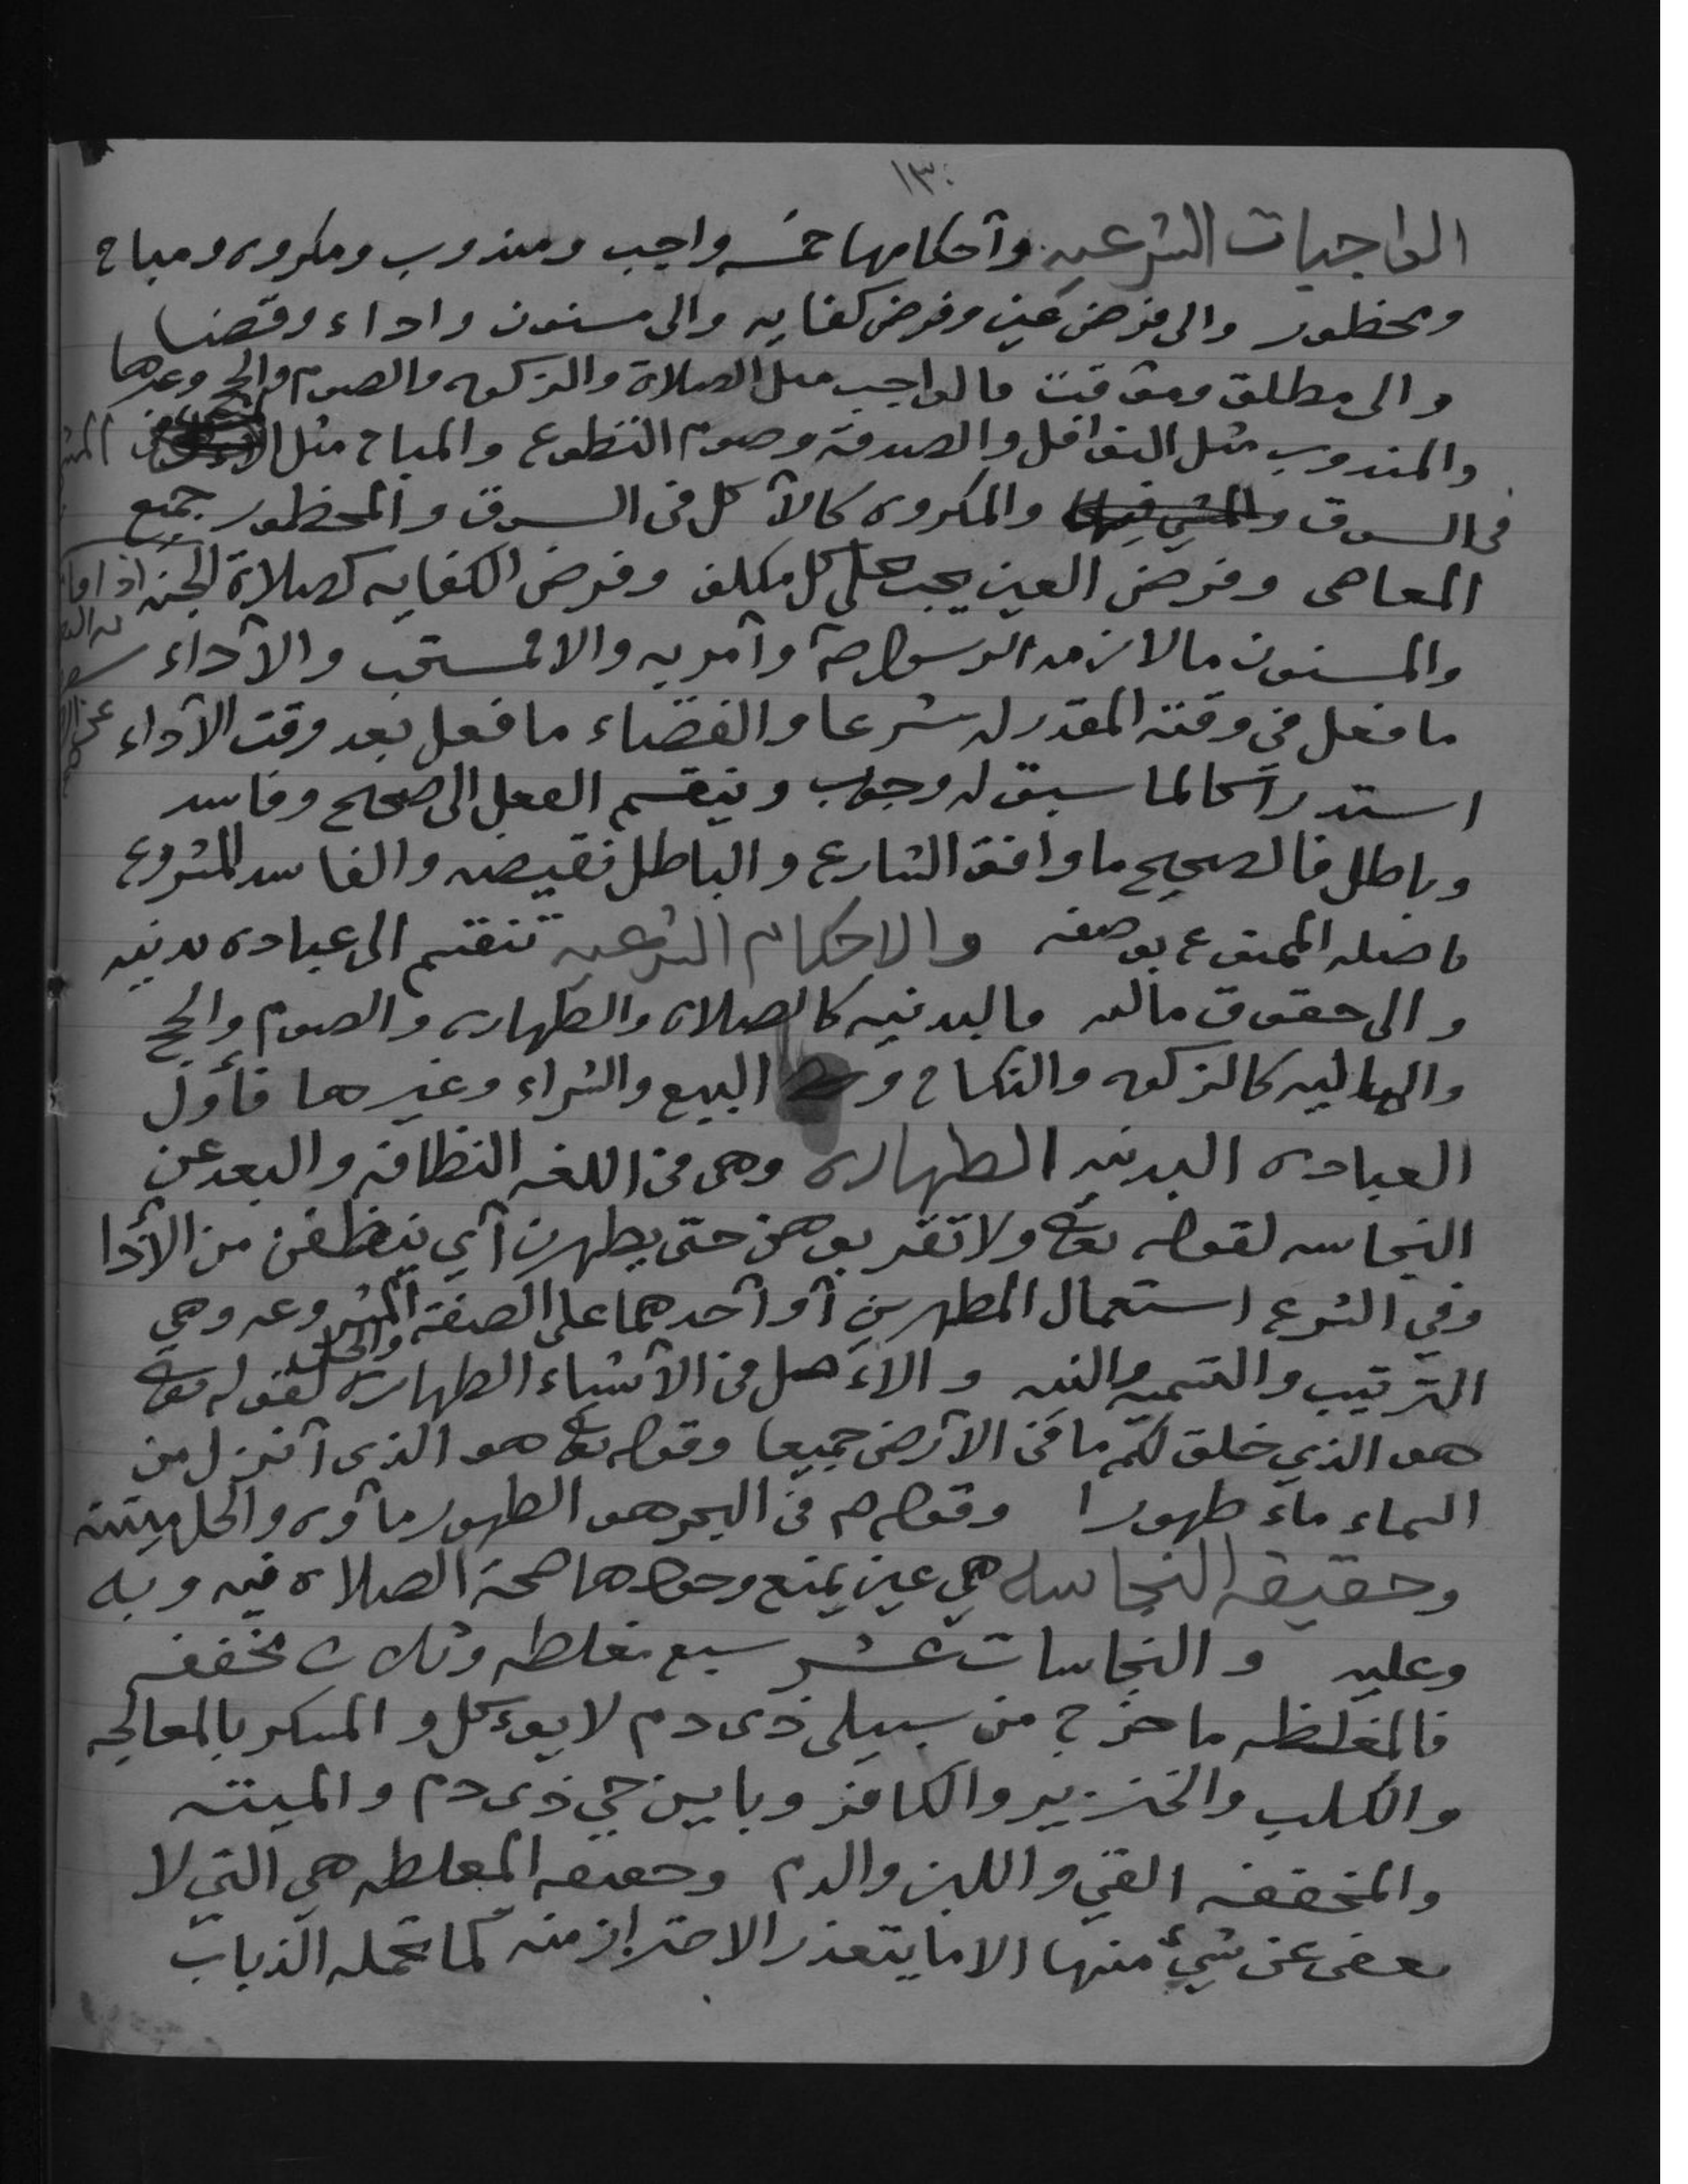 ١٣٠
الواجبات الشرعيه وأحكامها خمسه واجب ومندوب ومكروه ومباح
ومحظور والى فرض عين وفرض كفايه والى مسنون واداء وقضا
والى مطلق وموقت فالواجب مثل الصلاة والزكوه والصوم والحج وغيرها
والمندوب مثل النوافل والصدقة وصوم التطوع والمباح مثل
فى السوق والمكروه كالأكل فى السوق والمحظور جميع
المعاصى وفرض العين يجب على كل مكلف وفرض الكفايه كصلاة الجنازه
والمسنون ما لازمه الرسول صلم وأمر به والا فمستحب والأداء
ما فعل في وقته المقدر له شرعا والقضاء ما فعل بعد وقت الأداء
استدراكا لما سبق له وجوب وينقسم الفعل الى صحيح وفاسد
وباطل فالصحيح ما وافق الشارع والباطل نقيضه والفاسد المشروع
باصله الممنوع بوصفه والاحكام الشرعيه تنقسم الى عباده بدنيه
والى حقوق ماليه فالبدنيه كالصلاه والطهاره والصوم والحج
والماليه كالزكوه والنكاح و البيع والشراء وغيرها فأول
العباده البدنيه الطهاره وهى فى اللغه النظافه والبعد عن
النجاسه لقوله تعالى ولا تقربوهن حتى يطهرن أي ينظفن من الأذا
وفي الشرع استعمال المطهرين أو أحدهما على الصفة المشروعه وهي
الترتيب والتسميه والنيه والاءصل فى الأشياء الطهاره والحل لقوله تعالى
هو الذي خلق لكم ما فى الأرض جميعا وقوله تعالى هو الذى أنزل من
السماء ماء طهورا وقوله صلم فى البحر هو الطهور ماؤه والحل ميتته
وحقيقه النجاسه هي عين يمنع وجودها صحة الصلاه فيه وبه
وعليه والنجاسات عشر سبع مغلظه وثلاث مخففه
فالمغلظه ما خرج من سبيلى ذى دم لا يوءكل والمسكر بالمعالجه
والكلب والخنزير والكافر وبايين حي ذى دم والميته
والمخففه القي واللبن والدم وحقيقه المغلظه هي التي لا
يعفى عن شيء منها الا ما يتعذر الاحتراز منه كما تحمله الذباب